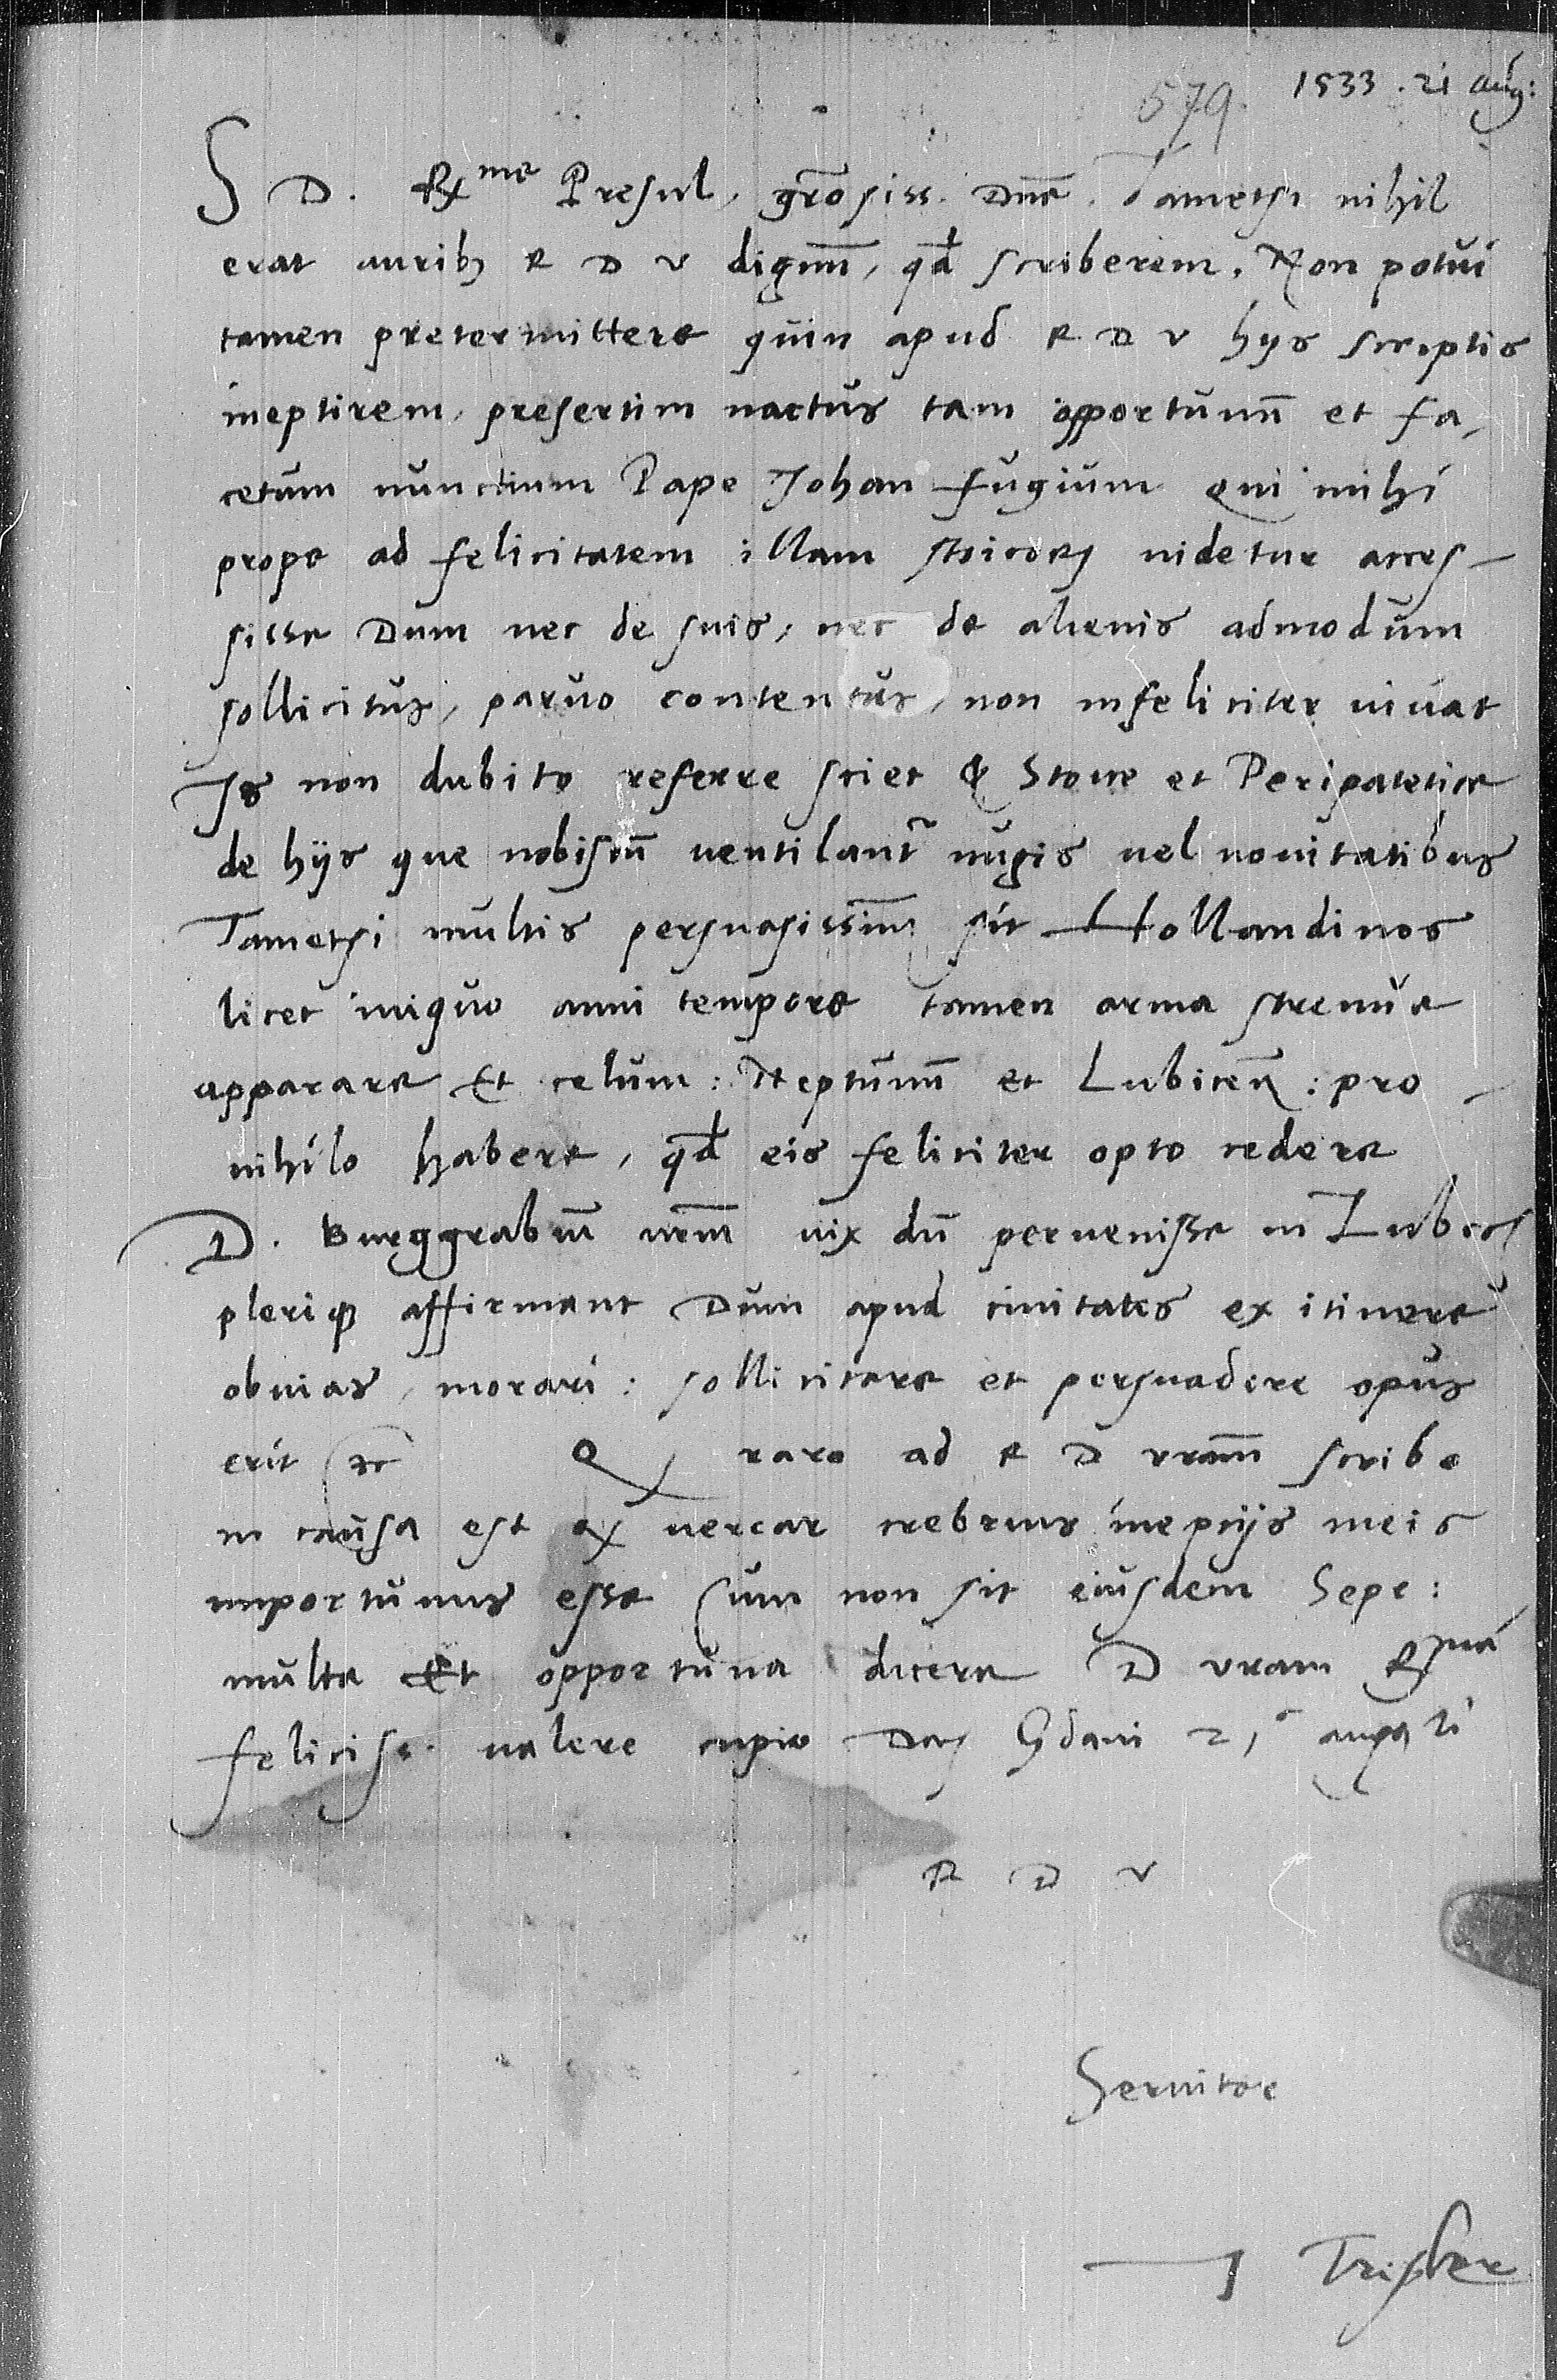 1533 . 21 Aug:
579.
S D. Rme Presul, grosiss. Dne. Tametsi nihil
erat aurib R D V dignu, qd scriberem. Non potui
tamen pretermittere quin apud R D V hijs scriptis
ineptirem, presertim nactus tam opportunu et fa,
cetum nunctium Pape Johan fugium qui mihi
prope ad felicitatem illam stoicoru videtur acces-
sisse Dum nec de suis, nec de alienis admodum
sollicitus, paruo contentus, non infeliciter uiuat
Is non dubito referre sciet & Stoice et Peripatetice
de hijs que nobiscu uentilant nugis uel nouitatibus
Tametsi multis persuasissimu sit Hollandinos
licet iniquo anni tempore tamen arma strenue
apparare Et celum: Neptunu et Lubicen: pro
nihilo habere, qd eis feliciter opto cedere
D. Burggrabiu nrm uix du peruenisse in Lubec
pleriq affirmant Dum apud ciuitates ex itinere
obuias, morari: sollicitare et persuadere opus
erit etc Q raro ad R D vram scribo
in causa est q uerear crebrius ineptijs meis
importunus esse Cum non sit eiusdem Sepe:
multa Et opportuna dicere D vram Rma
feliciss. ualere cupio Dat Gdani 21 augusti
R D V
Seruitor
J Tresler